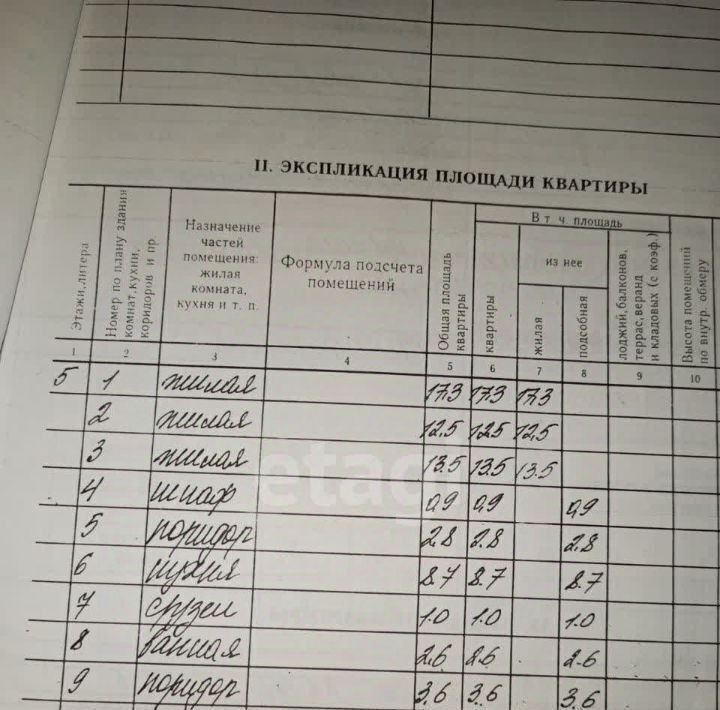 II. ЭКСПЛИКАЦИЯ ПЛОЩАДИ КВАРТИРЫ
Этажи, литера
Номер по плану здания комнат, кухни, коридоров и пр.
Назначение
частей
помещения:
жилая
комната,
кухня и т. п.
Формула подсчета
помещений
Общая площадь квартиры
В т. ч. площадь
квартиры
из нее
жилая
подсобная
лоджий, балконов, террас, веранд и кладовых (с коэф.)
Высота помещений по внутр. обмеру
1 2 3 4 5 6 7 8 9 10
5 1 жилая 17.3 17.3 17.3
2 жилая 12.5 12.5 12.5
3 жилая 13.5 13.5 13.5
4 шкаф 0,9 0,9 0,9
5 коридор 2.8 2.8 2.8
6 кухня 8.7 8.7 8.7
7 с/узел 1.0 1.0 1.0
8 ванная 2.6 2.6 2.6
9 коридор 3.6 3.6 3.6
etagi